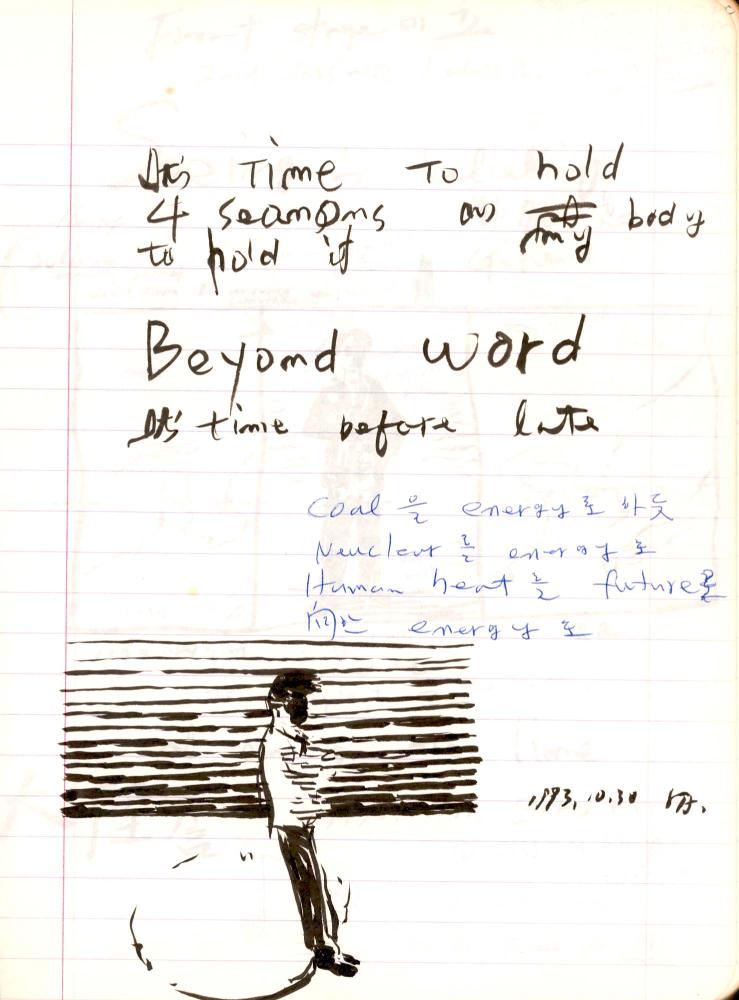 It's Time To hold
4 seansons on my body
to hold it
Beyond word
It's time before late
Coal 을 energy로 하듯
Neuclear를 energy로
Human heat를 future를
向한 energy로
1993.10.30